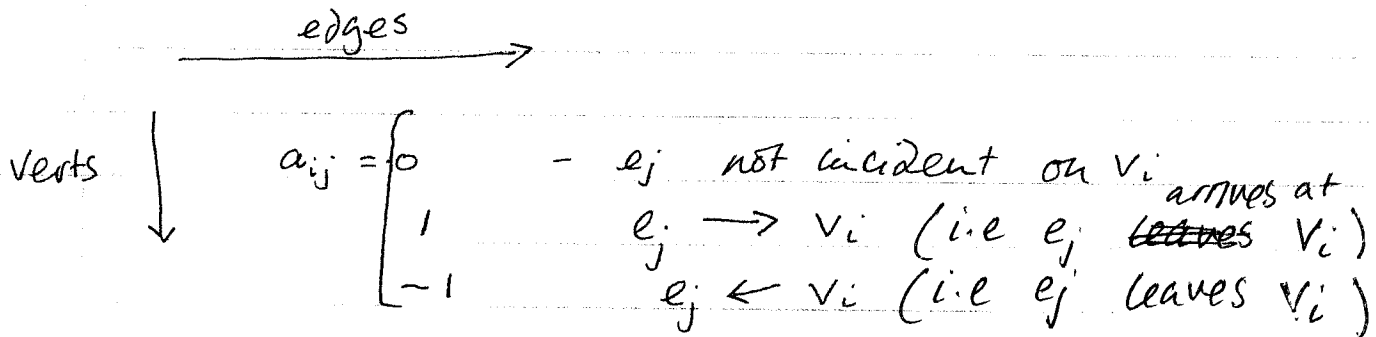 edges
verts
a_ij = { 0 - e_j not incident on v_i
1 e_j → v_i (i.e e_j leaves arrives at v_i)
-1 e_j ← v_i (i.e e_j leaves v_i)